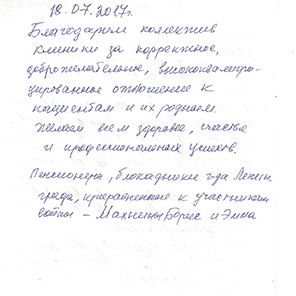 18.07.2017г.
Благодарим коллектив
клиники за корректное,
доброжелательное, высококвалифи-
цированное отношение к
пациентам и их родным.
Желаем всем здоровье, счастье
и профессиональных успехов.
Пенсионеры, блокадники г-да Ленин
града, приравненные к участникам
войны - Борис и Эмма